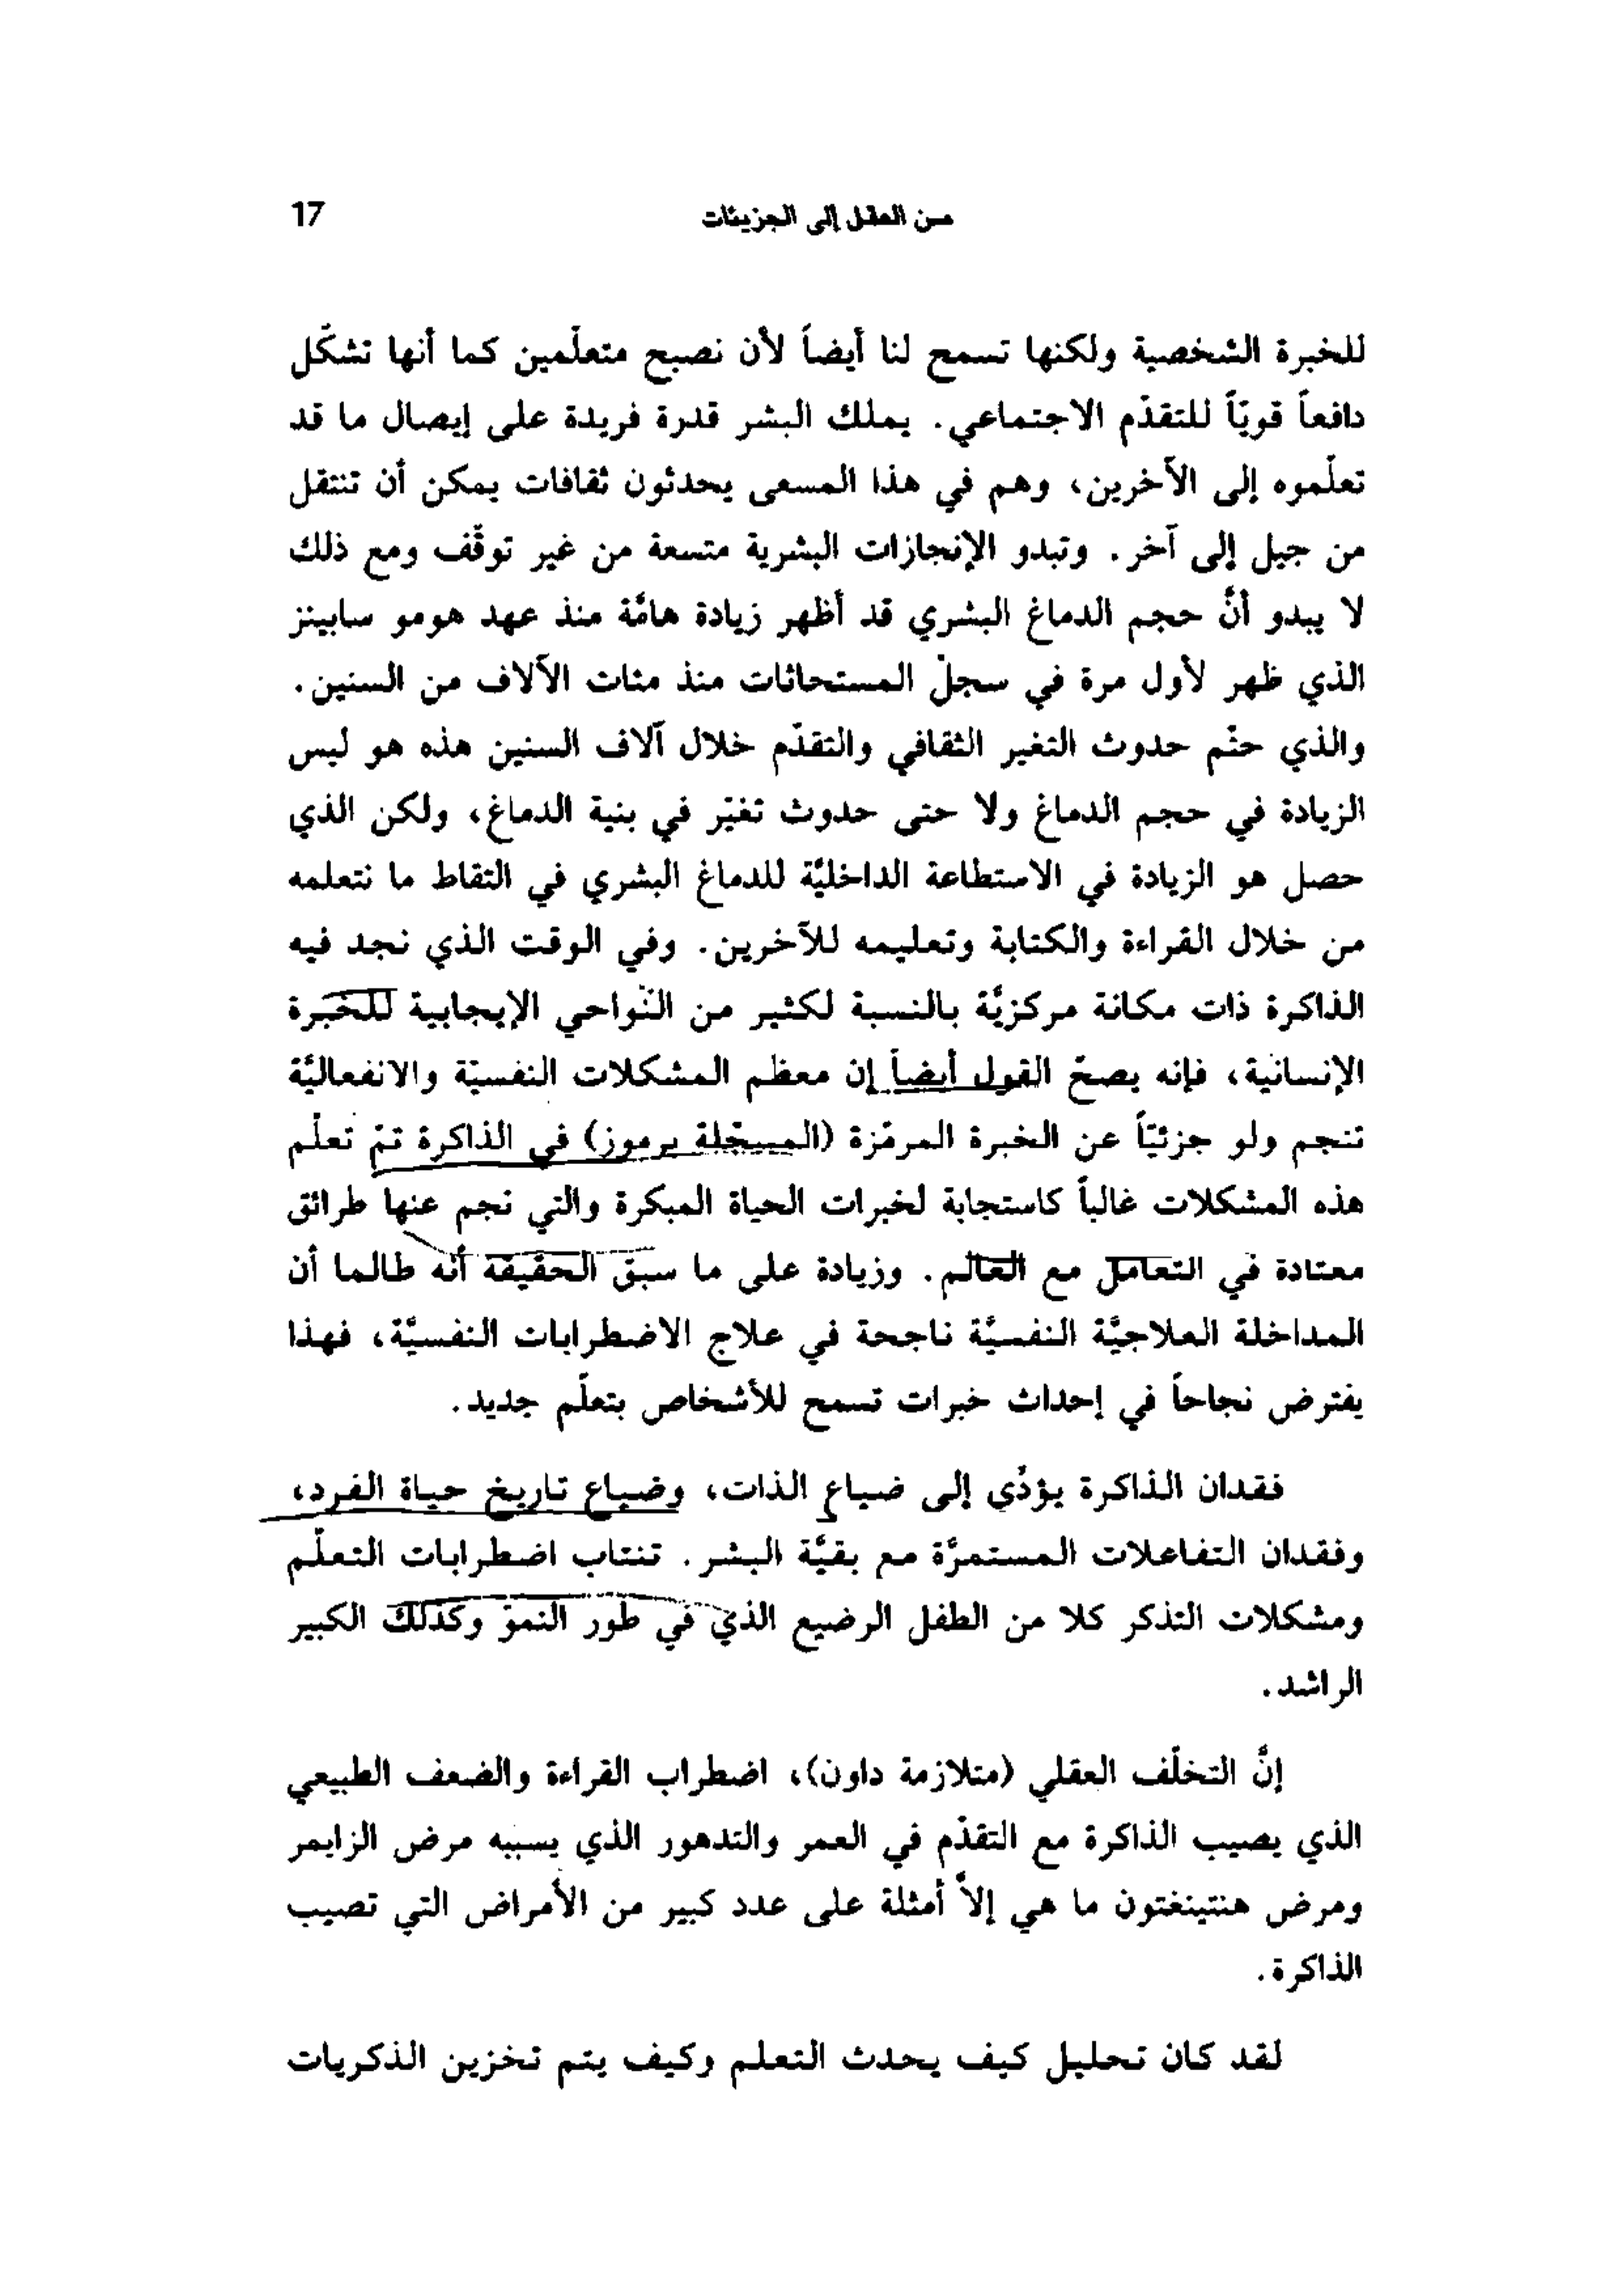 من العقل إلى الجزيئات 17
للخبرة الشخصية ولكنها تسمح لنا أيضاً لأن نصبح متعلّمين كما أنها تشكّل
دافعاً قويّاً للتقدّم الاجتماعي. يملك البشر قدرة فريدة على إيصال ما قد
تعلّموه إلى الآخرين، وهم في هذا المسعى يحدثون ثقافات يمكن أن تنتقل
من جيل إلى آخر. وتبدو الإنجازات البشرية متسعة من غير توقّف ومع ذلك
لا يبدو أنَّ حجم الدماغ البشري قد أظهر زيادة هامّة منذ عهد هومو سابينز
الذي ظهر لأول مرة في سجلّ المستحاثات منذ مئات الآلاف من السنين.
والذي حتّم حدوث التغير الثقافي والتقدّم خلال آلاف السنين هذه هو ليس
الزيادة في حجم الدماغ ولا حتى حدوث تغيّر في بنية الدماغ، ولكن الذي
حصل هو الزيادة في الاستطاعة الداخليّة للدماغ البشري في التقاط ما نتعلمه
من خلال القراءة والكتابة وتعليمه للآخرين. وفي الوقت الذي نجد فيه
الذاكرة ذات مكانة مركزيّة بالنسبة لكثير من النّواحي الإيجابية للخبرة
الإنسانية، فإنه يصحّ القول أيضاً إن معظم المشكلات النفسيّة والانفعاليّة
تنجم ولو جزئيّاً عن الخبرة المرمّزة (المسجّلة برموز) في الذاكرة تمّ تعلّم
هذه المشكلات غالباً كاستجابة لخبرات الحياة المبكرة والتي نجم عنها طرائق
معتادة في التعامل مع العالم. وزيادة على ما سبق الحقيقة أنه طالما أن
المداخلة العلاجيّة النفسيّة ناجحة في علاج الاضطرابات النفسيّة، فهذا
يفترض نجاحاً في إحداث خبرات تسمح للأشخاص بتعلّم جديد.
فقدان الذاكرة يؤدّي إلى ضياع الذات، وضياع تاريخ حياة الفرد،
وفقدان التفاعلات المستمرّة مع بقيّة البشر. تنتاب اضطرابات التعلّم
ومشكلات التذكر كلا من الطفل الرضيع الذي في طور النموّ وكذلك الكبير
الراشد.
إنَّ التخلّف العقلي (متلازمة داون)، اضطراب القراءة والضعف الطبيعي
الذي يصيب الذاكرة مع التقدّم في العمر والتدهور الذي يسببه مرض الزايمر
ومرض هنتينغتون ما هي إلاّ أمثلة على عدد كبير من الأمراض التي تصيب
الذاكرة.
لقد كان تحليل كيف يحدث التعلم وكيف يتم تخزين الذكريات